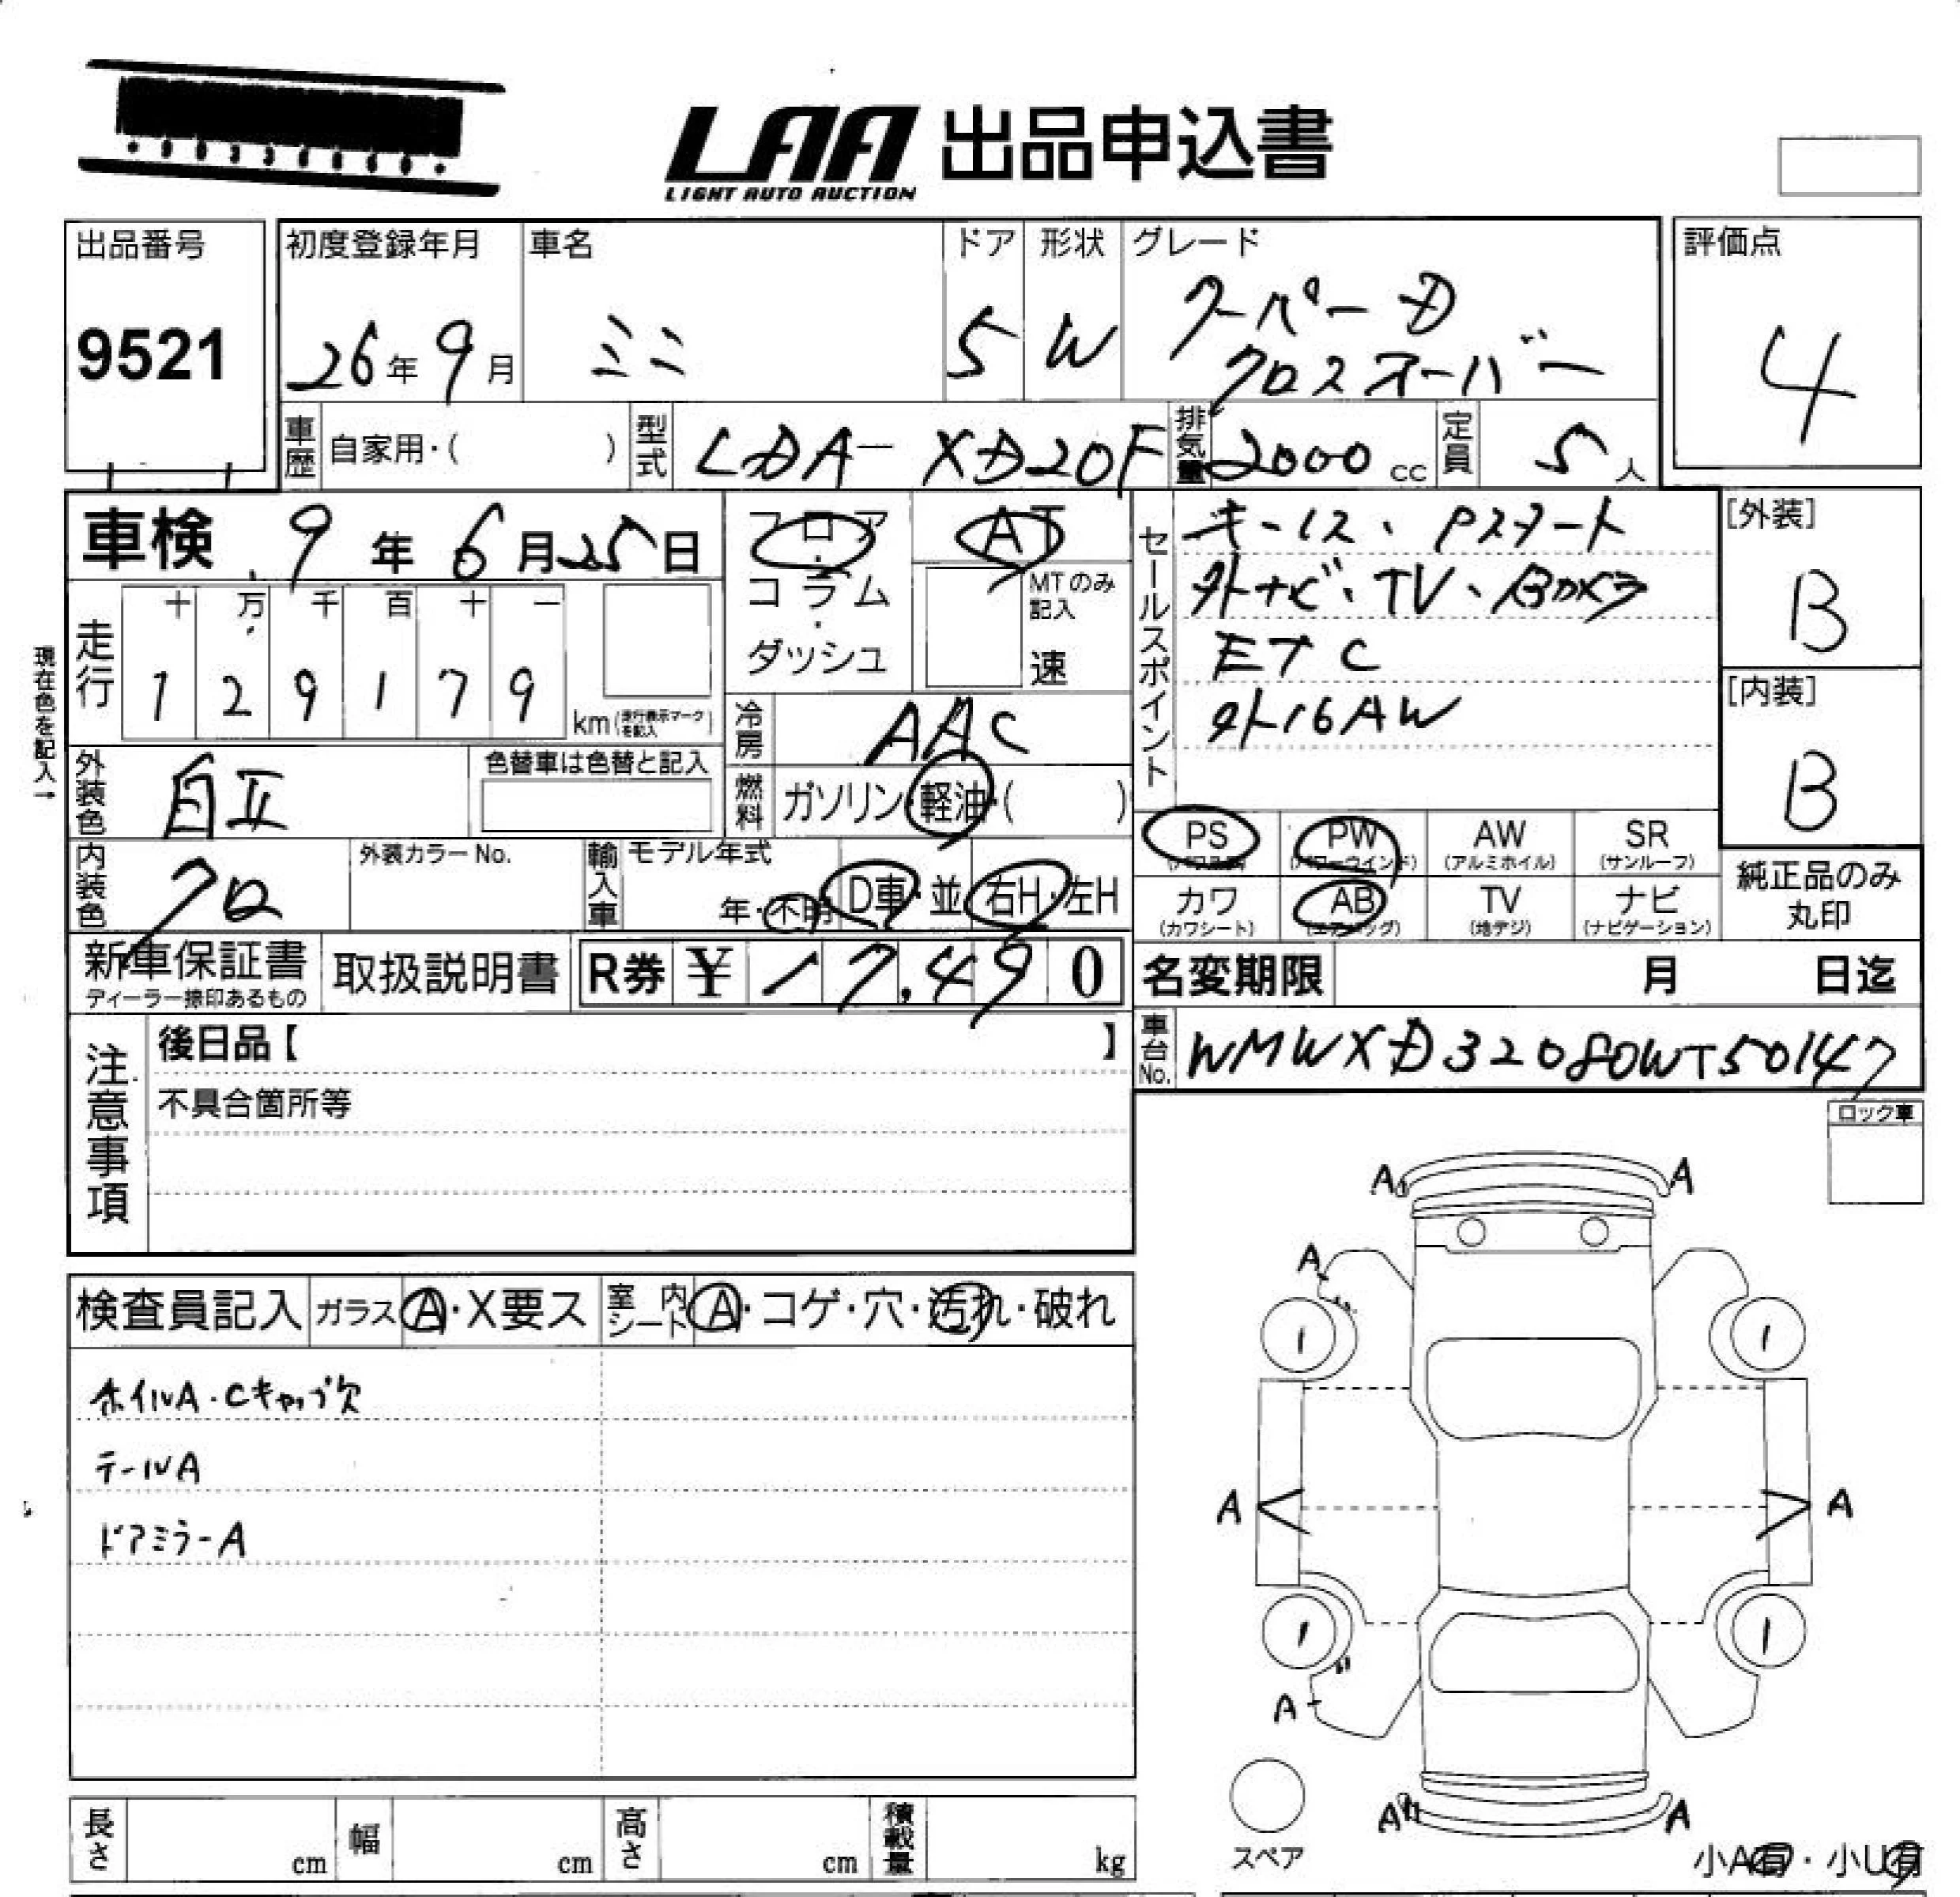 LAA 出品申込書
LIGHT AUTO AUCTION
出品番号
9521
初度登録年月
26年9月
車名
ミニ
ドア
5
形状
W
グレード
クーパーD
クロスオーバー
評価点
4
車歴 自家用・( )
型式 LDA-XD20F
排気量 2000 cc
定員 5人
車検 9年6月25日
フロア・コラム・ダッシュ
AT
MTのみ記入
速
走行
十 万 千 百 十 一
1 2 9 1 7 9
km(走行表示マークを記入)
現在色を記入→
冷房 AAC
燃料 ガソリン・軽油・( )
外装色
色替車は色替と記入
内装色 クロ
外装カラーNo.
輸入車 モデル年式
年・不明
D車・並 右H・左H
セールスポイント
キーレス、Pスタート
外ナビ、TV、Bカメラ
ETC
外16AW
[外装]
B
[内装]
B
PS(パワステ) PW(パワーウインド) AW(アルミホイル) SR(サンルーフ)
カワ(カワシート) AB(エアバッグ) TV(地デジ) ナビ(ナビゲーション)
純正品のみ丸印
新車保証書
ディーラー捺印あるもの
取扱説明書
R券 ¥17,490
名変期限 月 日迄
車台No. WMWXD32080WT50147
注意事項
後日品【 】
不具合箇所等
ロック車
検査員記入 ガラス A・X要ス
室内シート A・コゲ・穴・汚れ・破れ
ホイルA・Cキャップ欠
テールA
ドアミラーA
A A
A
1 1
A A
1 1
A
A A
スペア
小A有・小U有
長さ cm 幅 cm 高さ cm 積載量 kg